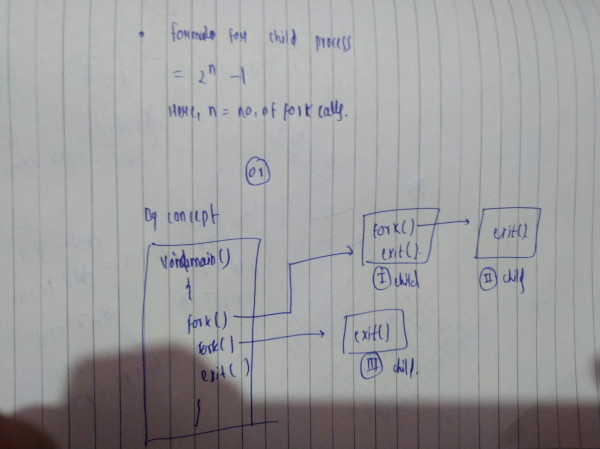 • Formula for child process
= 2ⁿ - 1
Here, n = no. of fork calls.
or
By concept
void main()
{
fork()
fork()
exit()
}
fork()
exit()
I child
exit()
II child
exit()
III child.